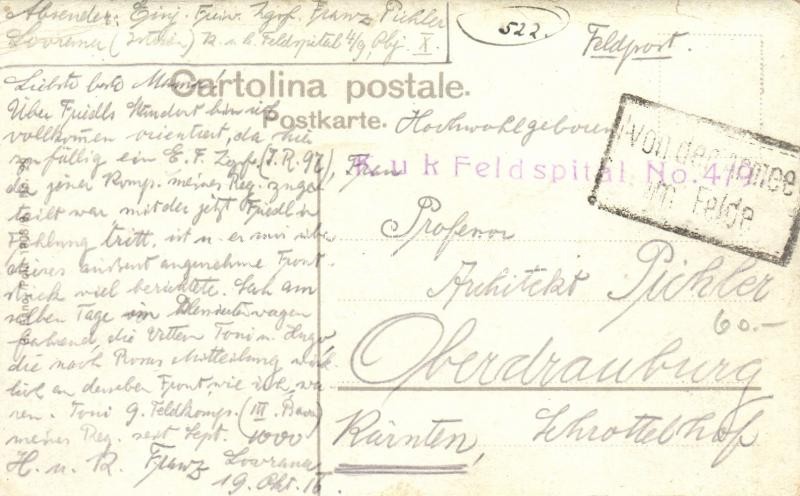 Absender: Einj. Freiw. Zgsf. Franz Pichler
Lovrana (Istrien) K. u. k. Feldspital 4/9, Obj. X.
522.
Feldpost.
Cartolina postale.
Postkarte.
Liebste beste Mama!
Über Friedls Standort bin ich
vollkommen orientiert, da hier
zufällig ein E. F. Zgsf. (I. R. 97),
der jener Komp. meines Reg. zuge-
teilt war, mit der jetzt Friedl in
Fühlung tritt, ist u. er mir über
dieses äußerst angenehme Front-
stück viel berichtete. Sah am
selben Tage im
fahrend die Vettern Toni u. Hugo,
die nach Romas Mitteilung wirk-
lich an derselben Front, wie ich, wa-
ren. Toni 9. Feldkomp. (III. Baon)
meines Reg. seit Sept. 1000
H. u. K. Franz Lovrana
19. Okt. 16
Hochwohlgeboren
K u k Feldspital No. 4/9
von der Armee
im Felde
Frau
Professor
Architekt Pichler
60.-
Oberdrauburg
Kärnten, Schrottelhof